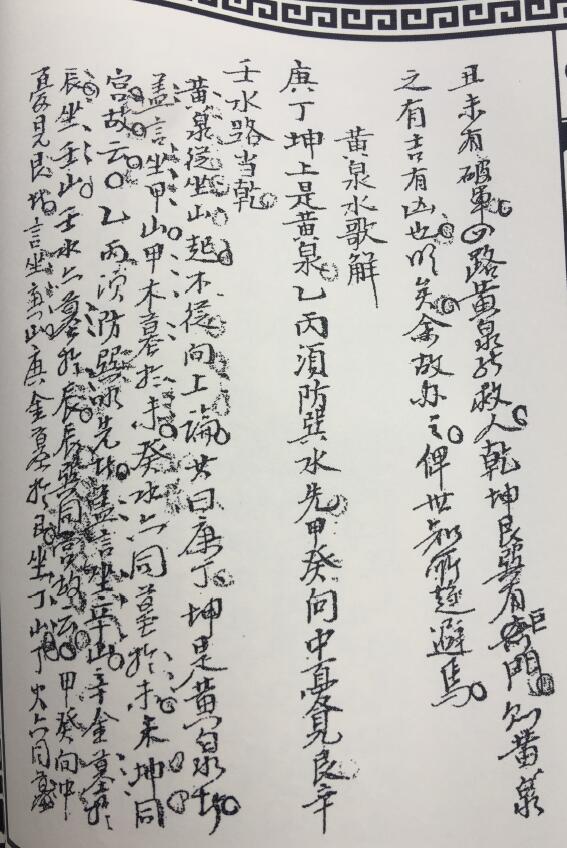 丑未有破軍四路黃泉能救人乾坤艮巽有巨門則黃泉
之有吉有凶也明矣余故辨之俾世知所趨避焉
黃泉水歌解
庚丁坤上是黃泉乙丙須防巽水先甲癸向中憂見艮辛
壬水路当乾
黃泉從坐山起不從向上論其曰庚丁坤是黃泉者
盖言坐甲山甲木墓於未癸水亦同墓於未未坤同
宮故云乙丙須防巽水先者盖言坐辛山辛金墓於
辰坐壬山壬水亦墓於辰辰巽同宮故云甲癸向中
憂見艮者言坐庚山庚金墓於丑坐丁山丁火亦同墓